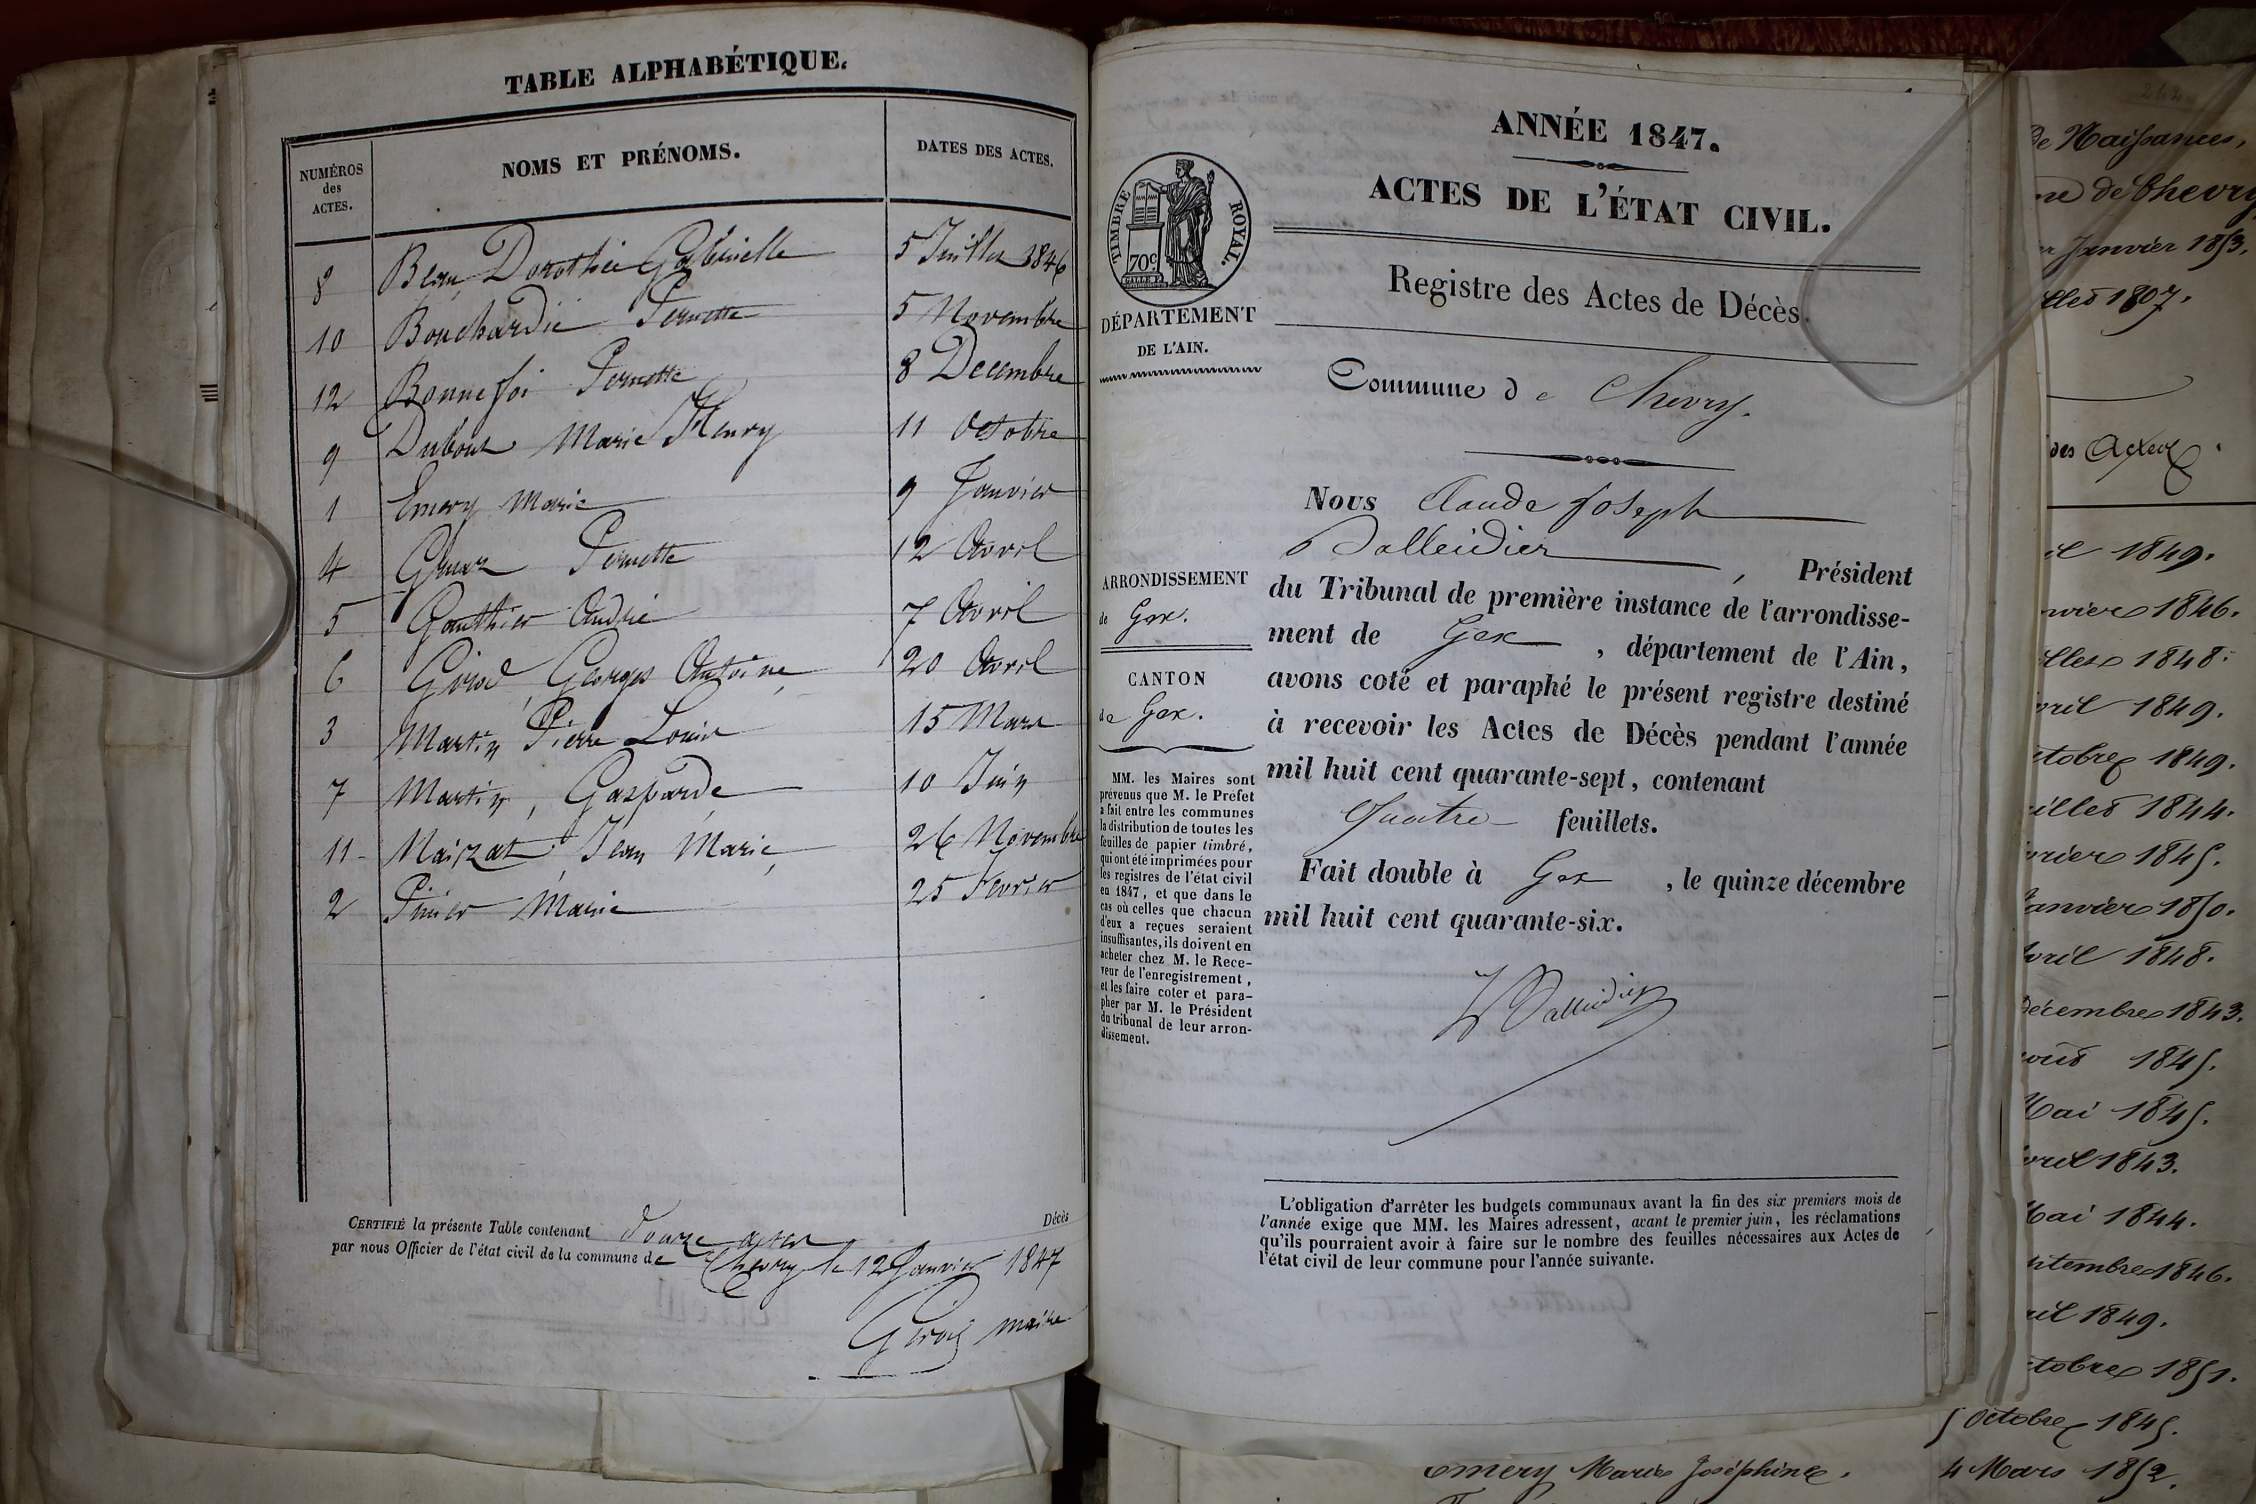 TABLE ALPHABÉTIQUE.
NUMÉROS
des
ACTES.
NOMS ET PRÉNOMS.
DATES DES ACTES.
8 Beau Dorothée Gabrielle 5 Juillet 1846
10 Bouchardié Pernette 5 Novembre
12 Bonnefoi Pernette 8 Decembre
9 Dubout Marie Henry 11 Octobre
1 Emery Marie 9 Janvier
4 Pernette 12 Avril
5 Gauthier André 7 Avril
6 Girod, Georges Antoine 20 Avril
3 Martin Pierre Louis 15 Mars
7 Martin, Gasparde 10 Juin
11 Maizat Jean Marie 26 Novembre
2 Marie 25 Fevrier
CERTIFIÉ la présente Table contenant douze actes Décès
par nous Officier de l'état civil de la commune de Chevry le 12 Janvier 1847
Girod maire
ANNÉE 1847.
ACTES DE L'ÉTAT CIVIL.
TIMBRE ROYAL.
70c
DÉPARTEMENT
DE L'AIN.
Registre des Actes de Décès.
Commune de Chevry.
Nous Claude Joseph
Balleidier, Président
du Tribunal de première instance de l'arrondisse-
ment de Gex, département de l'Ain,
avons coté et paraphé le présent registre destiné
à recevoir les Actes de Décès pendant l'année
mil huit cent quarante-sept, contenant
Quatre feuillets.
Fait double à Gex, le quinze décembre
mil huit cent quarante-six.
Balleidier
ARRONDISSEMENT
de Gex.
CANTON
de Gex.
MM. les Maires sont
prévenus que M. le Préfet
a fait entre les communes
la distribution de toutes les
feuilles de papier timbré,
qui ont été imprimées pour
les registres de l'état civil
en 1847, et que dans le
cas où celles que chacun
d'eux a reçues seraient
insuffisantes, ils doivent en
acheter chez M. le Rece-
veur de l'enregistrement,
et les faire coter et para-
pher par M. le Président
du tribunal de leur arron-
dissement.
L'obligation d'arrêter les budgets communaux avant la fin des six premiers mois de
l'année exige que MM. les Maires adressent, avant le premier juin, les réclamations
qu'ils pourraient avoir à faire sur le nombre des feuilles nécessaires aux Actes de
l'état civil de leur commune pour l'année suivante.
de Naissances,
ne de Chevry
er Janvier 1853.
llet 1807.
des Actes.
il 1849.
nvier 1846.
illet 1848.
vril 1849.
ctobre 1849.
uillet 1844.
vrier 1845.
Janvier 1850.
Avril 1848.
Décembre 1843.
oût 1845.
Mai 1845.
vril 1843.
Mai 1844.
ptembre 1846.
ril 1849.
ctobre 1851.
5 Octobre 1845.
Emery Marie Joséphine. 4 Mars 1852.